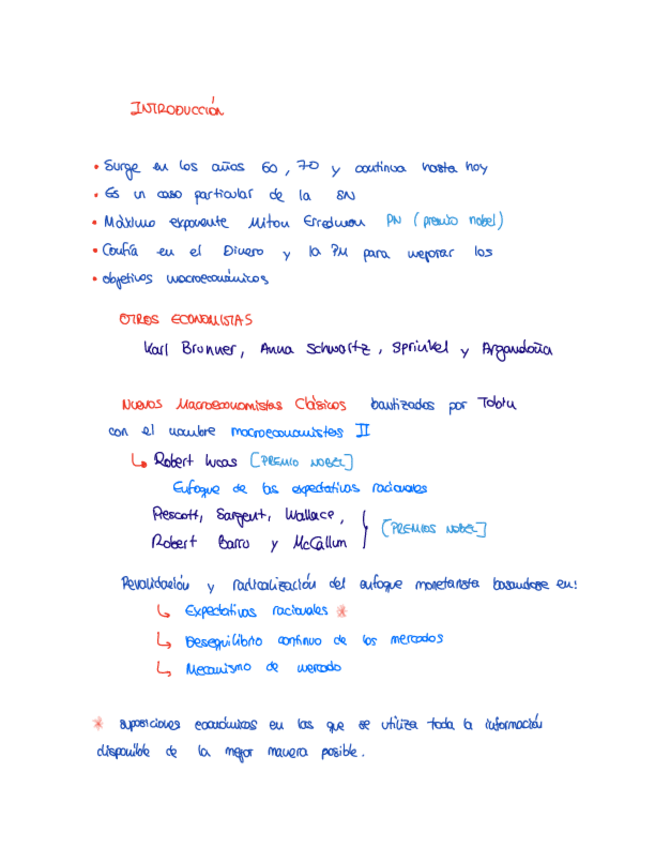 INTRODUCCIÓN
• Surge en los años 60, 70 y continua hasta hoy
• Es un caso particular de la SN
• Máximo exponente Miton Erredman PN (premio nobel)
• Confía en el Dinero y la PM para mejorar los
• objetivos macroeconómicos
OTROS ECONOMISTAS
Karl Brunner, Anna Schwartz, Sprinkel y Argandoña
Nuevos Macroeconomistas Clásicos bautizados por Tobin
con el nombre macroeconomistas II
↳ Robert Lucas [PREMIO NOBEL]
Enfoque de las expectativas racionales
Prescott, Sargent, Wallace,
Robert Barro y McCallum } [PREMIOS NOBEL]
Revalidación y radicalización del enfoque monetarista basandose en:
↳ Expectativas racionales *
↳ Desequilibrio continuo de los mercados
↳ Mecanismo de mercado
* suposiciones económicas en las que se utiliza toda la información
disponible de la mejor manera posible.